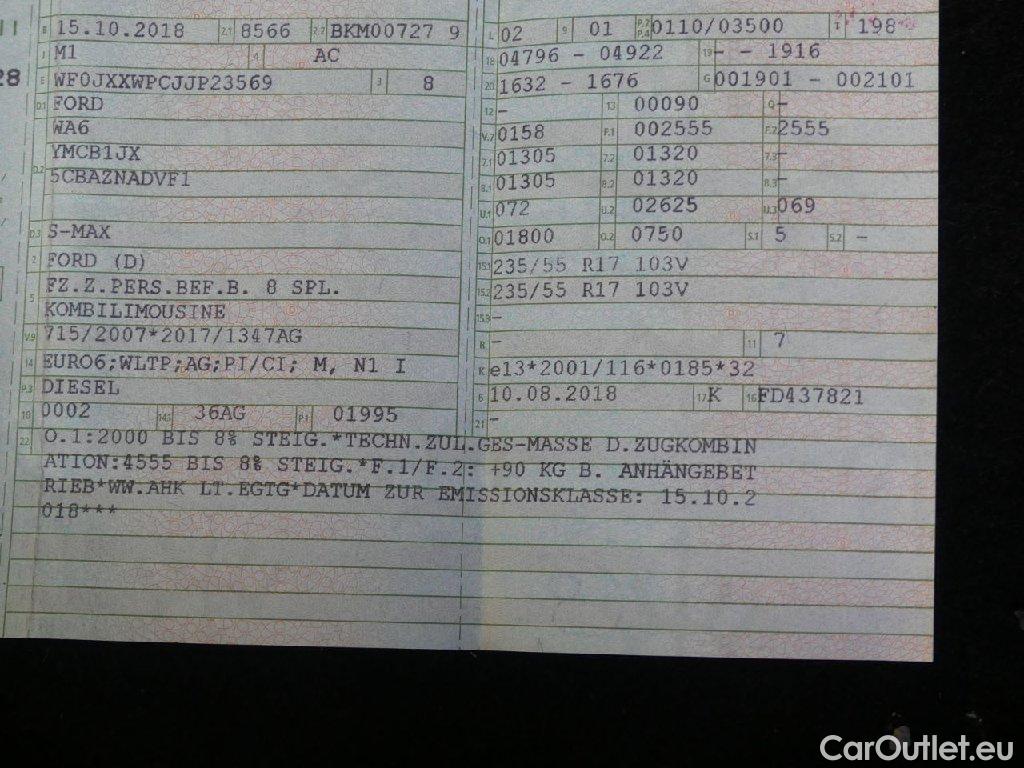 B 15.10.2018 2.1 8566 2.2 BKM00727 9
J M1 4 AC
28
E WF0JXXWPCJJP23569 3 8
D.1 FORD
WA6
D.2 YMCB1JX
5CBAZNADVF1
D.3 S-MAX
2 FORD (D)
5 FZ.Z.PERS.BEF.B. 8 SPL.
KOMBILIMOUSINE
V.9 715/2007*2017/1347AG
14 EURO6;WLTP;AG;PI/CI; M, N1 I
P.3 DIESEL
10 0002 14.1 36AG P.1 01995
L 02 9 01 P.2 P.4 0110/03500 T 198
18 04796 - 04922 19 - - 1916
20 1632 - 1676 G 001901 - 002101
12 - 13 00090 Q -
V.7 0158 F.1 002555 F.2 2555
7.1 01305 7.2 01320 7.3 -
8.1 01305 8.2 01320 8.3 -
U.1 072 U.2 02625 U.3 069
O.1 01800 O.2 0750 S.1 5 S.2 -
15.1 235/55 R17 103V
15.2 235/55 R17 103V
15.3 -
R - 11 7
K e13*2001/116*0185*32
6 10.08.2018 17 K 16 FD437821
21 -
22 O.1:2000 BIS 8% STEIG.*TECHN.ZUL.GES-MASSE D.ZUGKOMBIN
ATION:4555 BIS 8% STEIG.*F.1/F.2: +90 KG B. ANHÄNGEBET
RIEB*WW.AHK LT.EGTG*DATUM ZUR EMISSIONSKLASSE: 15.10.2
018***
CarOutlet.eu